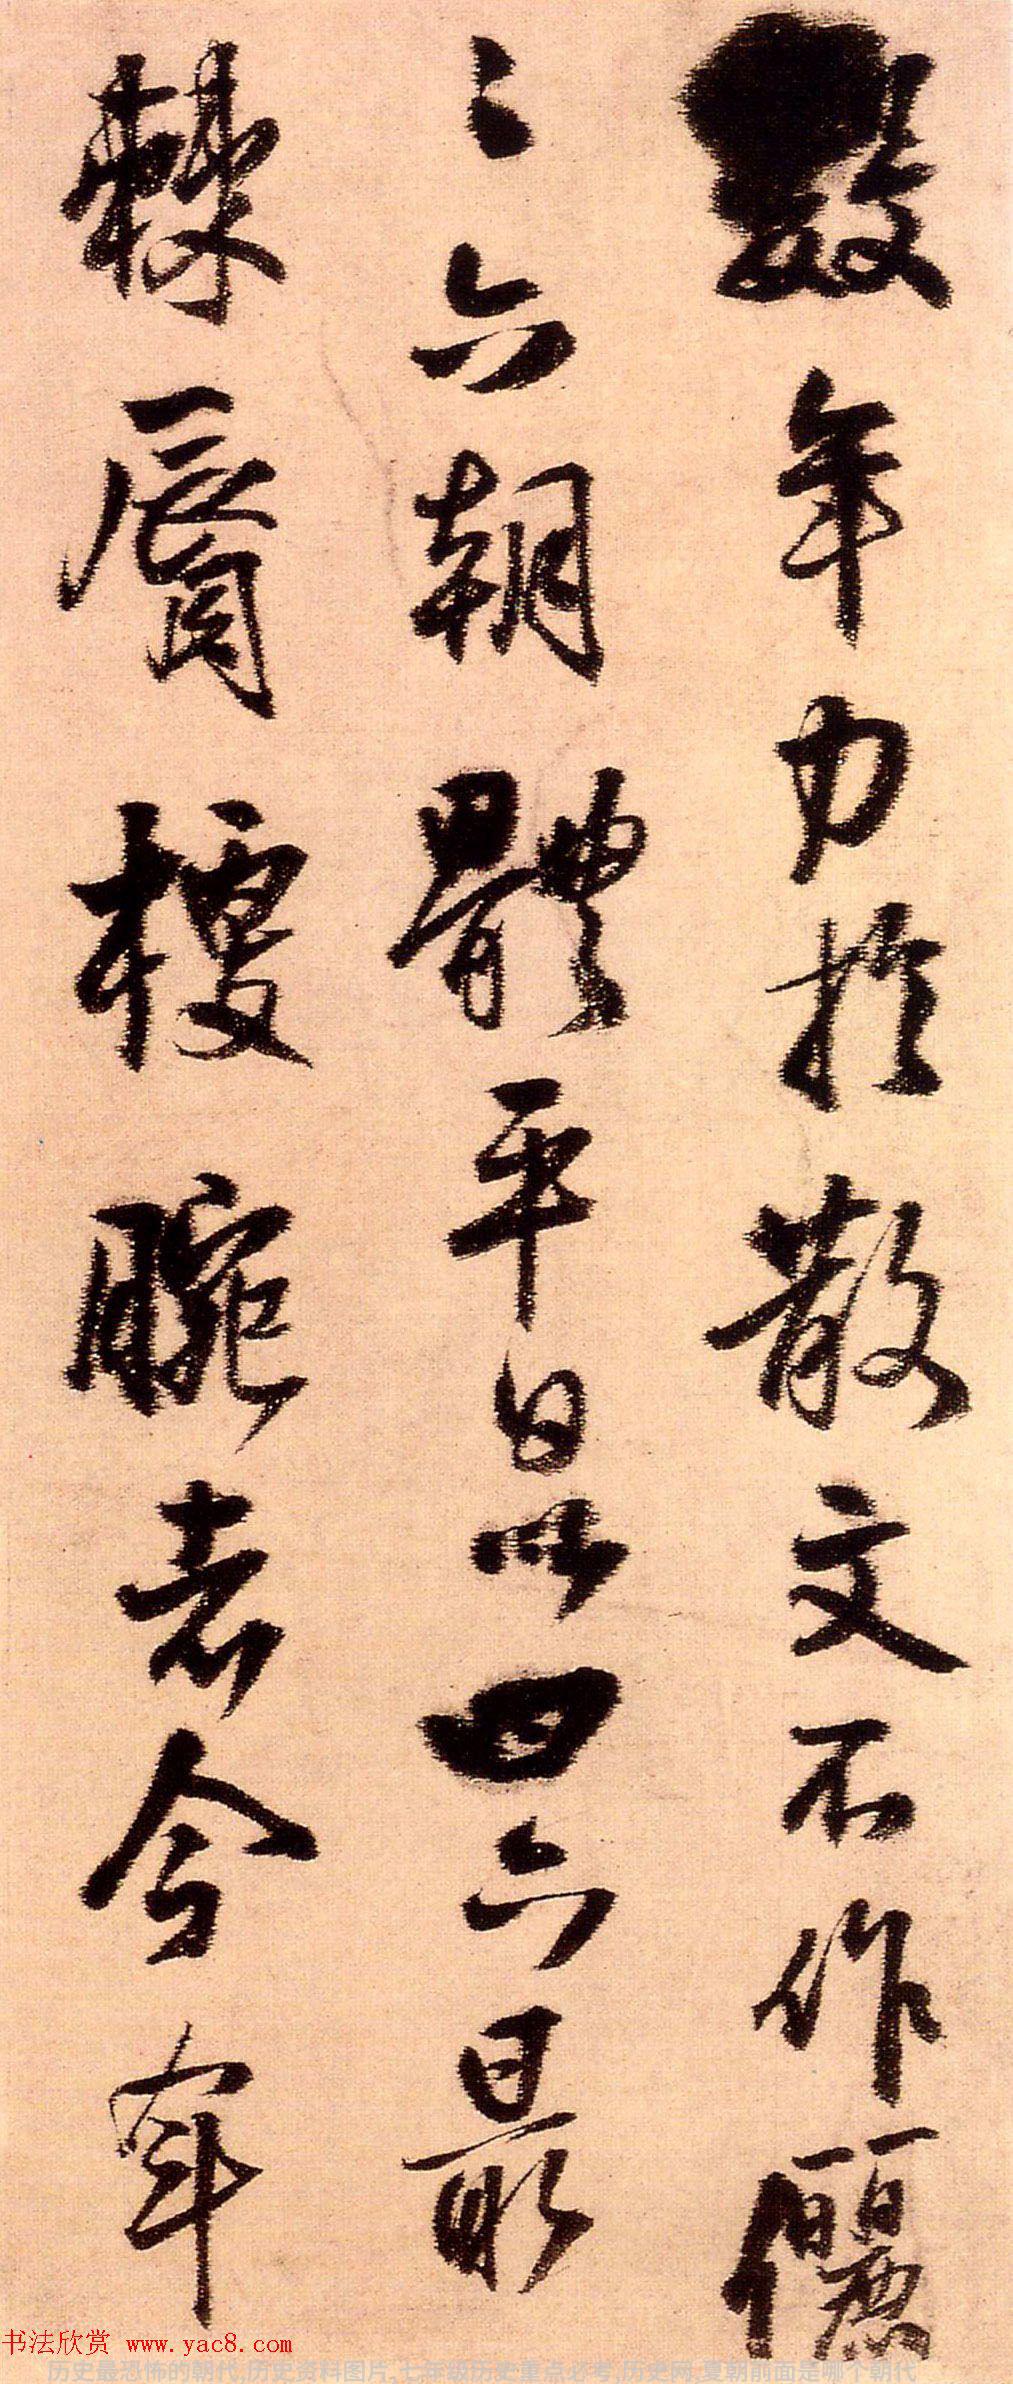 數年力於散文不作儷
六朝體平日以四六最
棘脣梗腕者今年
书法欣赏 www.yac8.com
历史最恐怖的朝代,历史资料图片,七年级历史重点必考,历史网,夏朝前面是哪个朝代